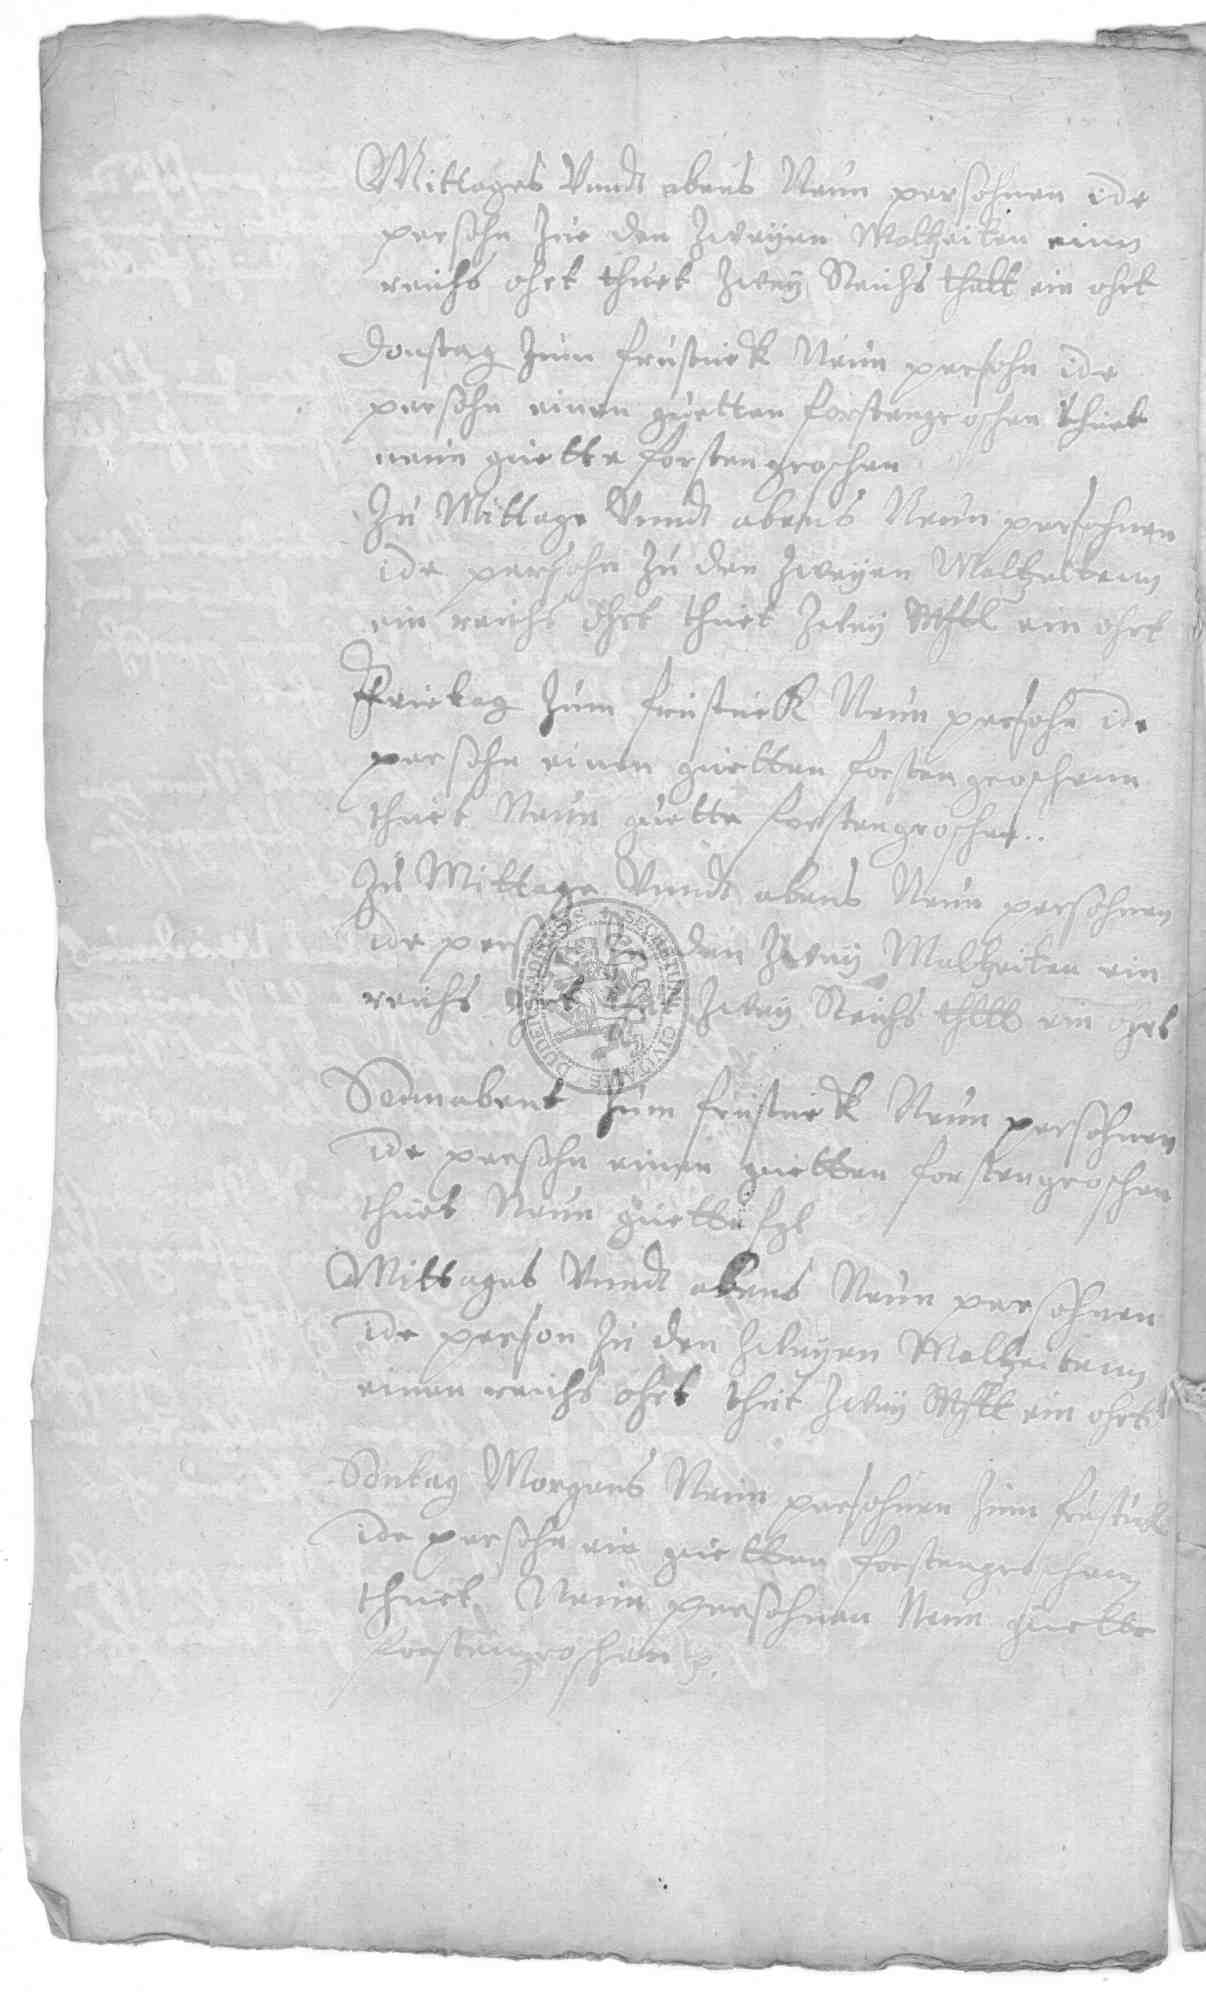 Mittages Vnndt abens Neun persohnen ide
persohn Zue den Zweÿen Maltzeiten einen
reichs ohrt thuet Zweÿ Reichs thall ein ohrt
Donstag Zum frustuck Neun persohn ide
persohn einen guetten forstengroschen thuet
neun guette forstengroschen
Zu Mittage Vnndt abens Neun persohnen
ide persohn Zu den Zweÿen Maltzeitenn
ein reichs ohrt thuet Zweÿ Rthl ein ohrt
Freitag Zum frustuck Neun persohn ide
persohn einen guetten forstengroschenn
thuet Neun guette forstengroschen
Zu Mittage Vnndt abens Neun persohnen
ide persohn den Zweÿ Maltzeiten ein
reichs ohrt Zweÿ Reichs thall ein ohrt
Sonnabent Zum frustuck Neun persohnen
ide persohn einen guetten forstengroschen
thuet Neun guette fgl
Mittages Vnndt abens Neun persohnen
ide person Zu den Zweÿen Maltzeitenn
einen reichs ohrt thut Zweÿ Rthl ein ohrt
Sontag Morgens Neun persohnen Zum frustuck
ide persohn ein guetten forstengroschenn
thuet Neun persohnen Neun guette
forstengroschen
SECRETUM CIVITATIS